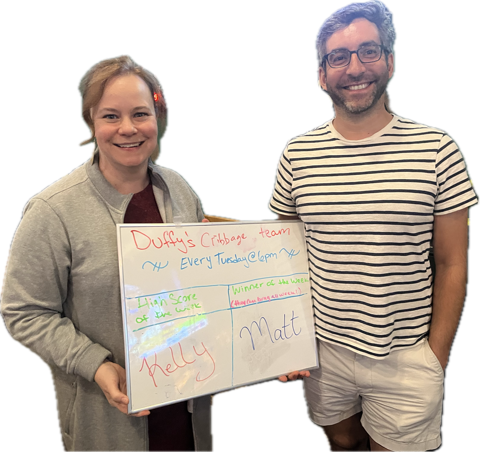 Duffy's Cribbage team
Every Tuesday @ 6pm
High Score
of the week
Winner of the Week
Kelly
Matt